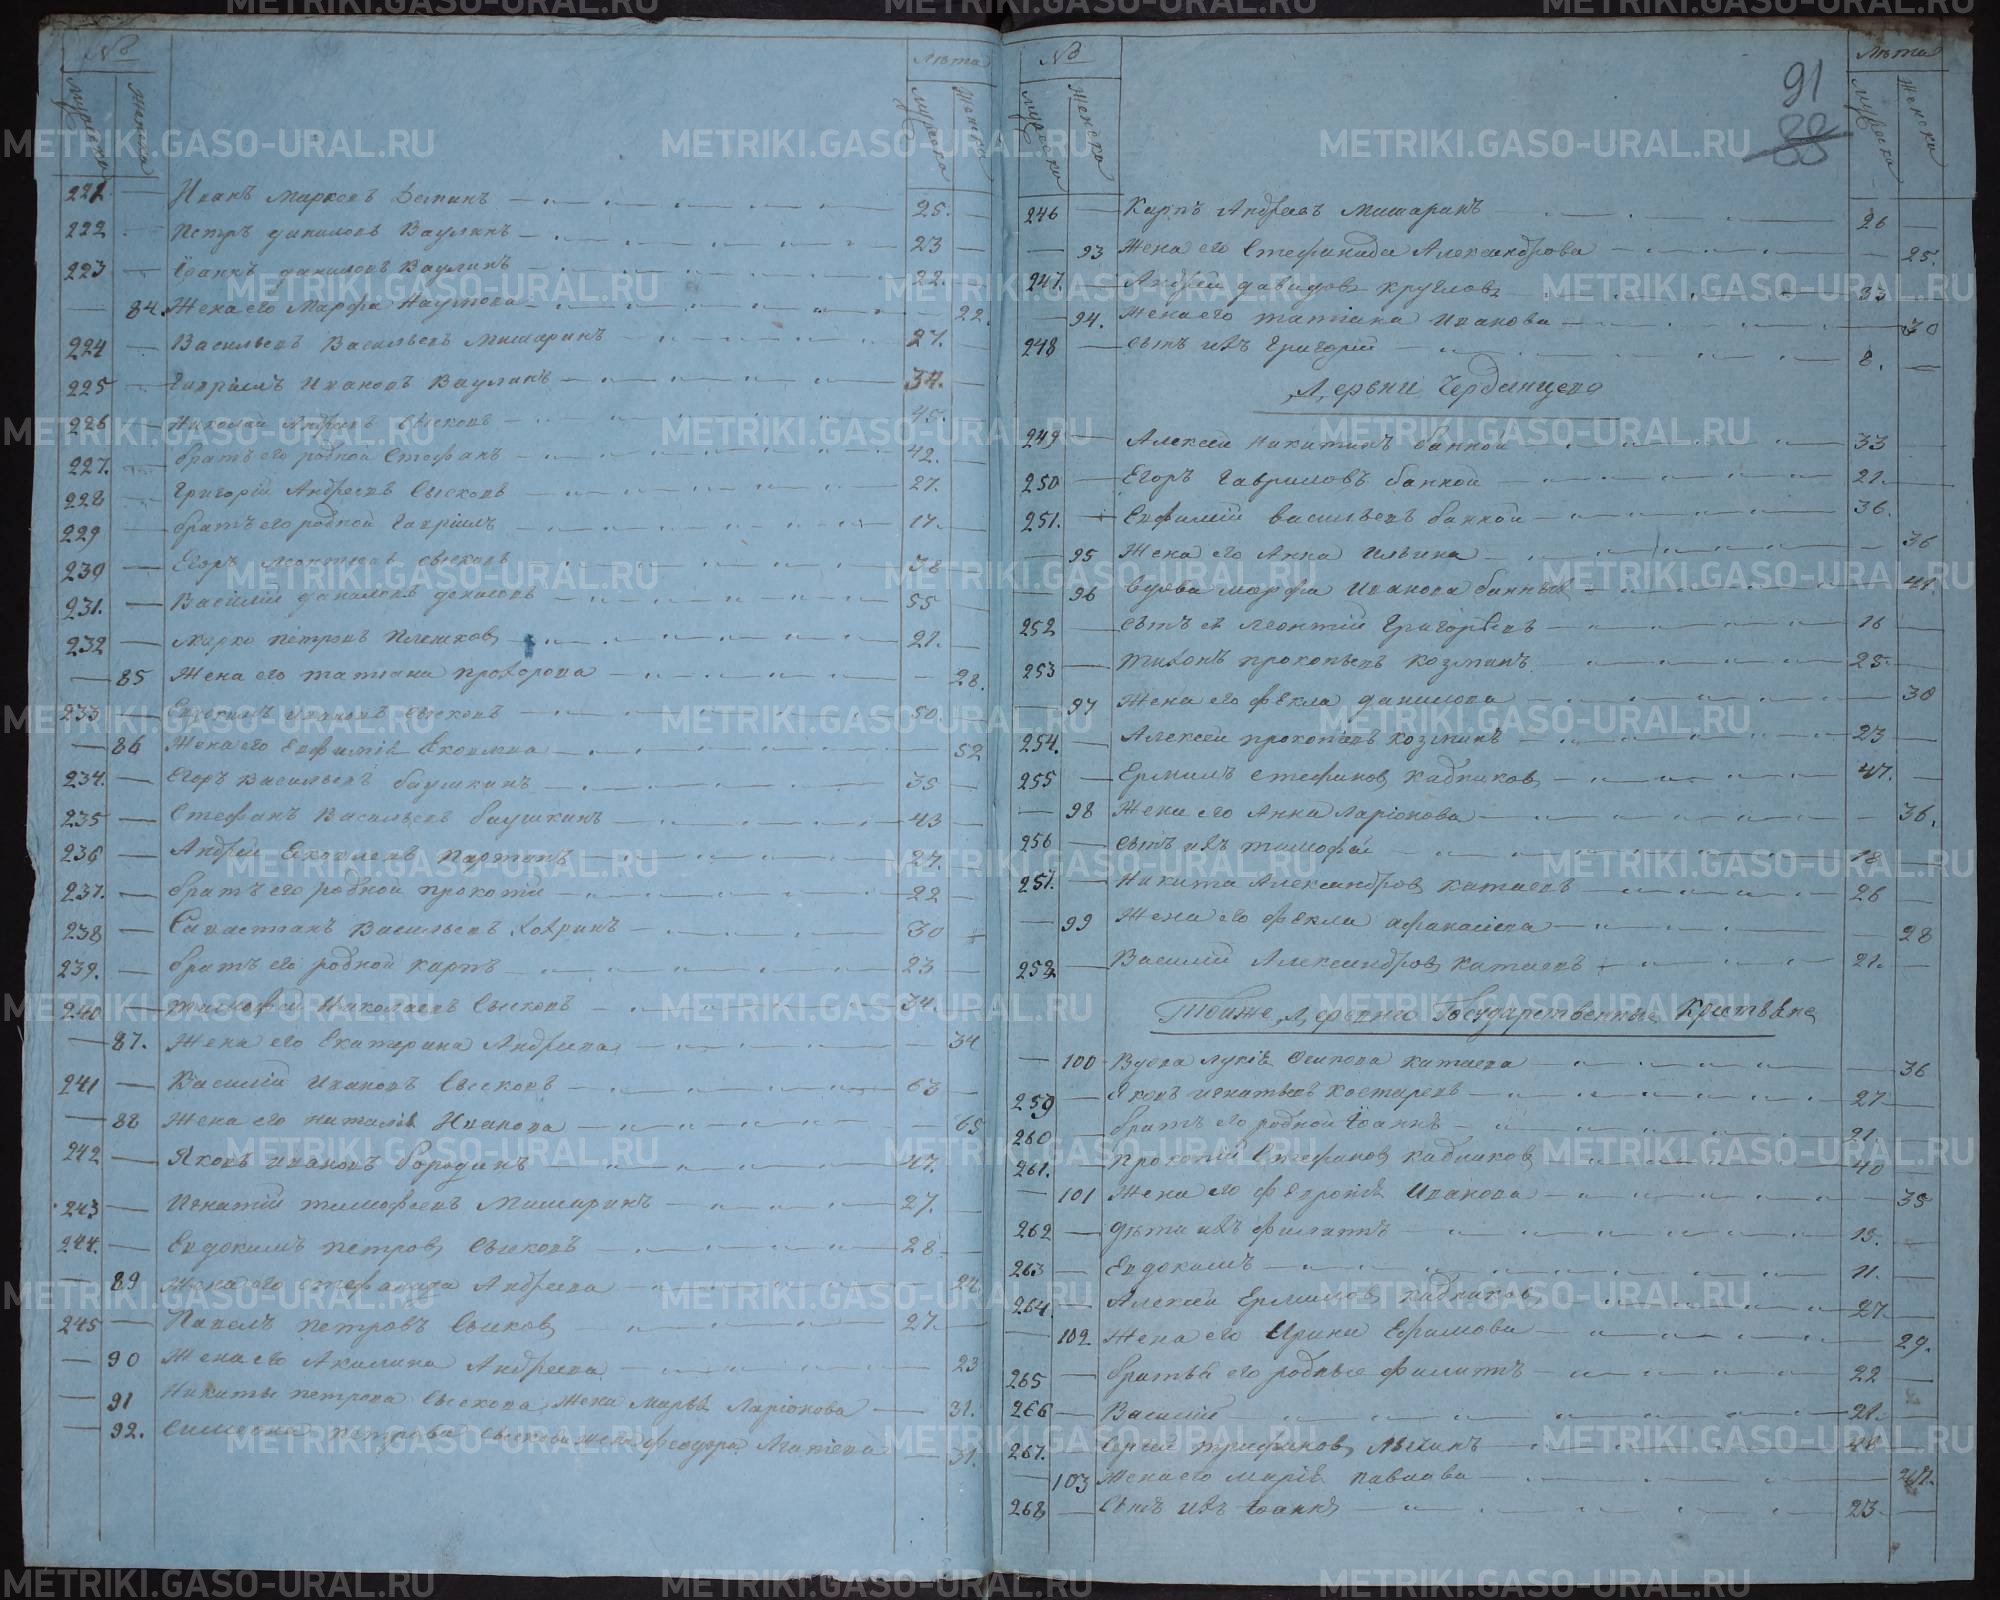 № Лѣта
Мужска Женска Мужска Женска
221 — Иванъ Марковъ Деминъ 25. —
222 — Петръ Даниловъ Ваулинъ 23 —
223 — Іоаннъ Даниловъ Ваулинъ 22. —
— 84. Жена его Марфа Наумова — 22.
224 — Василей Васильевъ Мишаринъ 27. —
225 — Гавріилъ Ивановъ Ваулинъ 34. —
226 — Николай Андреевъ Сысковъ 45. —
227. — братъ его родной Стефанъ 42. —
228 — Григорій Андреевъ Сысковъ 27. —
229 — братъ его родной Гавріилъ 17. —
230 — Егоръ Леонтьевъ Сысковъ 38 —
231. — Василій Даниловъ 55 —
232 — Марко Петровъ Плешковъ 21. —
— 85 Жена его Татіана Прохорова — 28.
233 — Евдокимъ Ивановъ Сысковъ 50. —
— 86 Жена его Евфимія Яковлева — 52
234. — Егоръ Васильевъ баушкинъ 35 —
235 — Стефанъ Васильевъ баушкинъ 43 —
236 — Андрей Яковлевъ Партинъ 27. —
237. — братъ его родной Прокопій 22 —
238 — Савастіанъ Васильевъ Хохринъ 30 —
239. — братъ его родной Карпъ 23 —
240 — Тимофей Николаевъ Сысковъ 34. —
— 87. Жена его Екатерина Андреева — 34
241 — Василій Ивановъ Сысковъ 63 —
— 88 Жена его Наталія Иванова — 65
242 — Яковъ Ивановъ бородинъ 47. —
243 — Игнатій Тимофеевъ Мишаринъ 27. —
244. — Евдокимъ Петровъ Сысковъ 28 —
— 89 Жена его Стефанида Андреева — 24
245 — Павелъ Петровъ Сысковъ 27. —
— 90 Жена его Акилина Андреева — 23
— 91 Никиты Петрова Сыскова Жена Марья Ларіонова — 31.
— 92. Симеона Петрова Сыскова жена Феодора — 31.
91
88
№ Лѣта
Мужска Женска Мужска Женска
246 — Карпъ Андреевъ Мишаринъ 26 —
— 93 Жена его Стефанида Александрова — 25.
247. — Андрей Давидовъ Кругловъ 33 —
— 94. Жена его Татіана Иванова — 30
248 — сынъ ихъ Григорій 8. —
Деревни Чердынцева
249 — Алексей Никитинъ банной 33 —
250 — Егоръ Гавриловъ банной 21. —
251. — Евфимій Васильевъ банной 36. —
— 95 Жена его Анна Ильина — 36
— 96 вдова Марфа Иванова — 41.
252 — сынъ ея Леонтій Григорьевъ 16 —
253 — Тихонъ Прокопьевъ Козминъ 25. —
— 97 Жена его Фекла Данилова — 30
254. — Алексей Прокопьевъ Козминъ 23 —
255 — Ермилъ Стефановъ Кадниковъ 47. —
— 98 Жена его Анна Ларіонова — 36.
256 — сынъ ихъ Тимофей 18 —
257. — Никита Александровъ Катаевъ 26 —
— 99 Жена его Фекла Афанасіева — 28
258. — Василій Александровъ Катаевъ 21. —
Тойже Деревни Государственные Крестьяне
— 100 Вдова Лукія Осипова Катаева — 36
259 — Яковъ Игнатьевъ Костаревъ 27 —
260 — братъ его родной Іоаннъ 21. —
261. — Прокопій Стефановъ Кадниковъ 40 —
— 101 Жена его Февронія Иванова — 35
262 — Дѣти ихъ Филатъ 13. —
263 — Евдокимъ 11. —
264. — Алексей Ермиловъ Кадниковъ 27. —
— 102. Жена его Ирина Ефимова — 29.
265 — братья его родные Филатъ 22 —
266 — Василій 21. —
267. — Сергій Трифановъ 48 —
— 103 Жена его Марія Павлова —
268 — Сынъ ихъ Іоаннъ 23. —